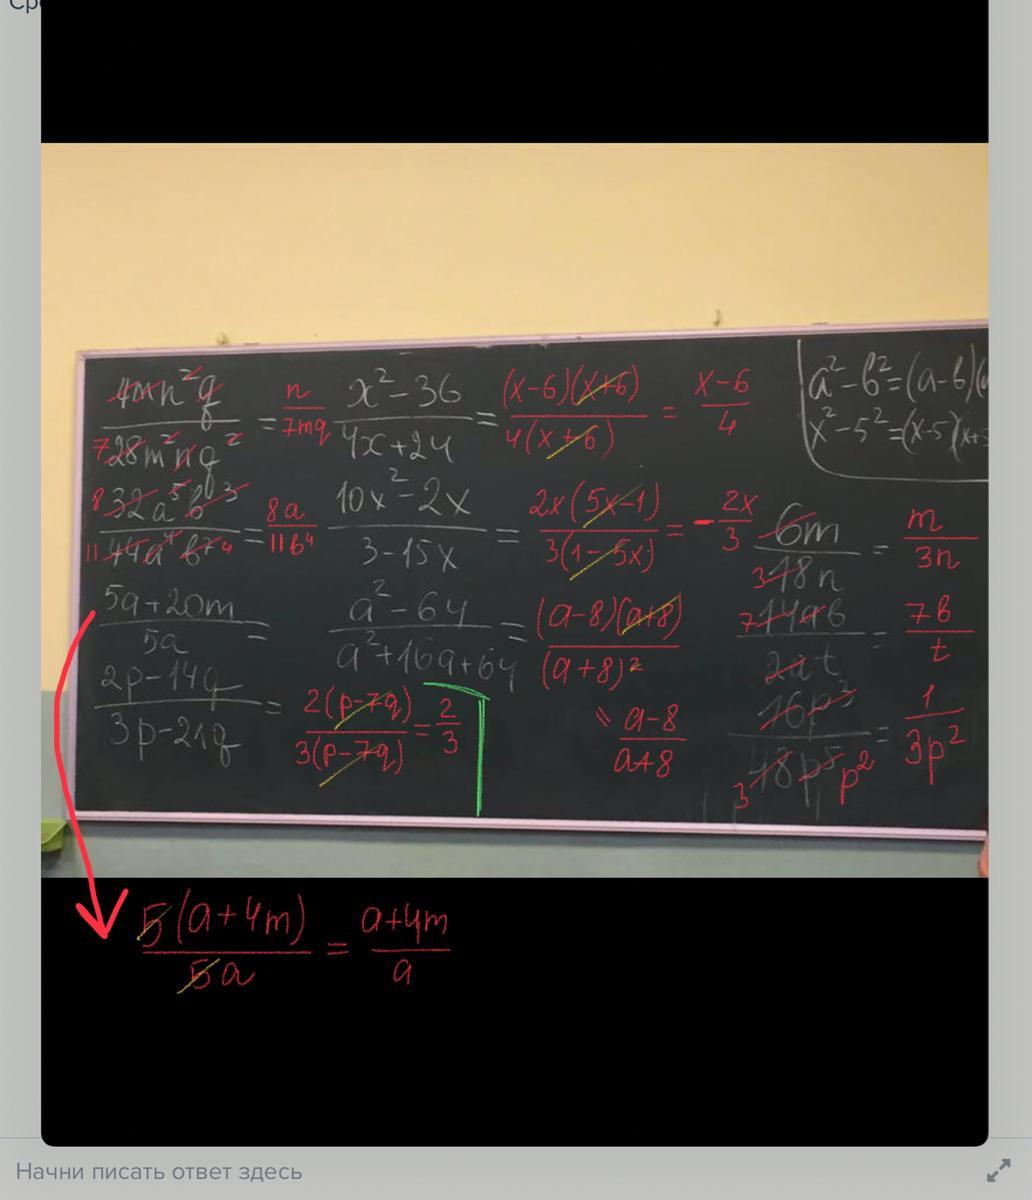 Ср
4mn²q / 28m²nq² = n / 7mq
7
x² - 36 / 4x + 24 = (x-6)(x+6) / 4(x+6) = x-6 / 4
a² - b² = (a-b)(
x² - 5² = (x-5)(x+5
32a⁵b³ / 44a⁴b⁷ = 8a / 11b⁴
8
11 4
10x² - 2x / 3 - 15x = 2x(5x-1) / 3(1-5x) = - 2x / 3
6m / 18n = m / 3n
3
5a+20m / 5a =
a² - 64 / a² + 16a + 64 = (a-8)(a+8) / (a+8)²
= a-8 / a+8
14ab / 2at = 7b / t
7
2p - 14q / 3p - 21q = 2(p-7q) / 3(p-7q) = 2 / 3
16p³ / 48p⁵ = 1 / 3p²
3 p²
5(a+4m) / 5a = a+4m / a
Начни писать ответ здесь